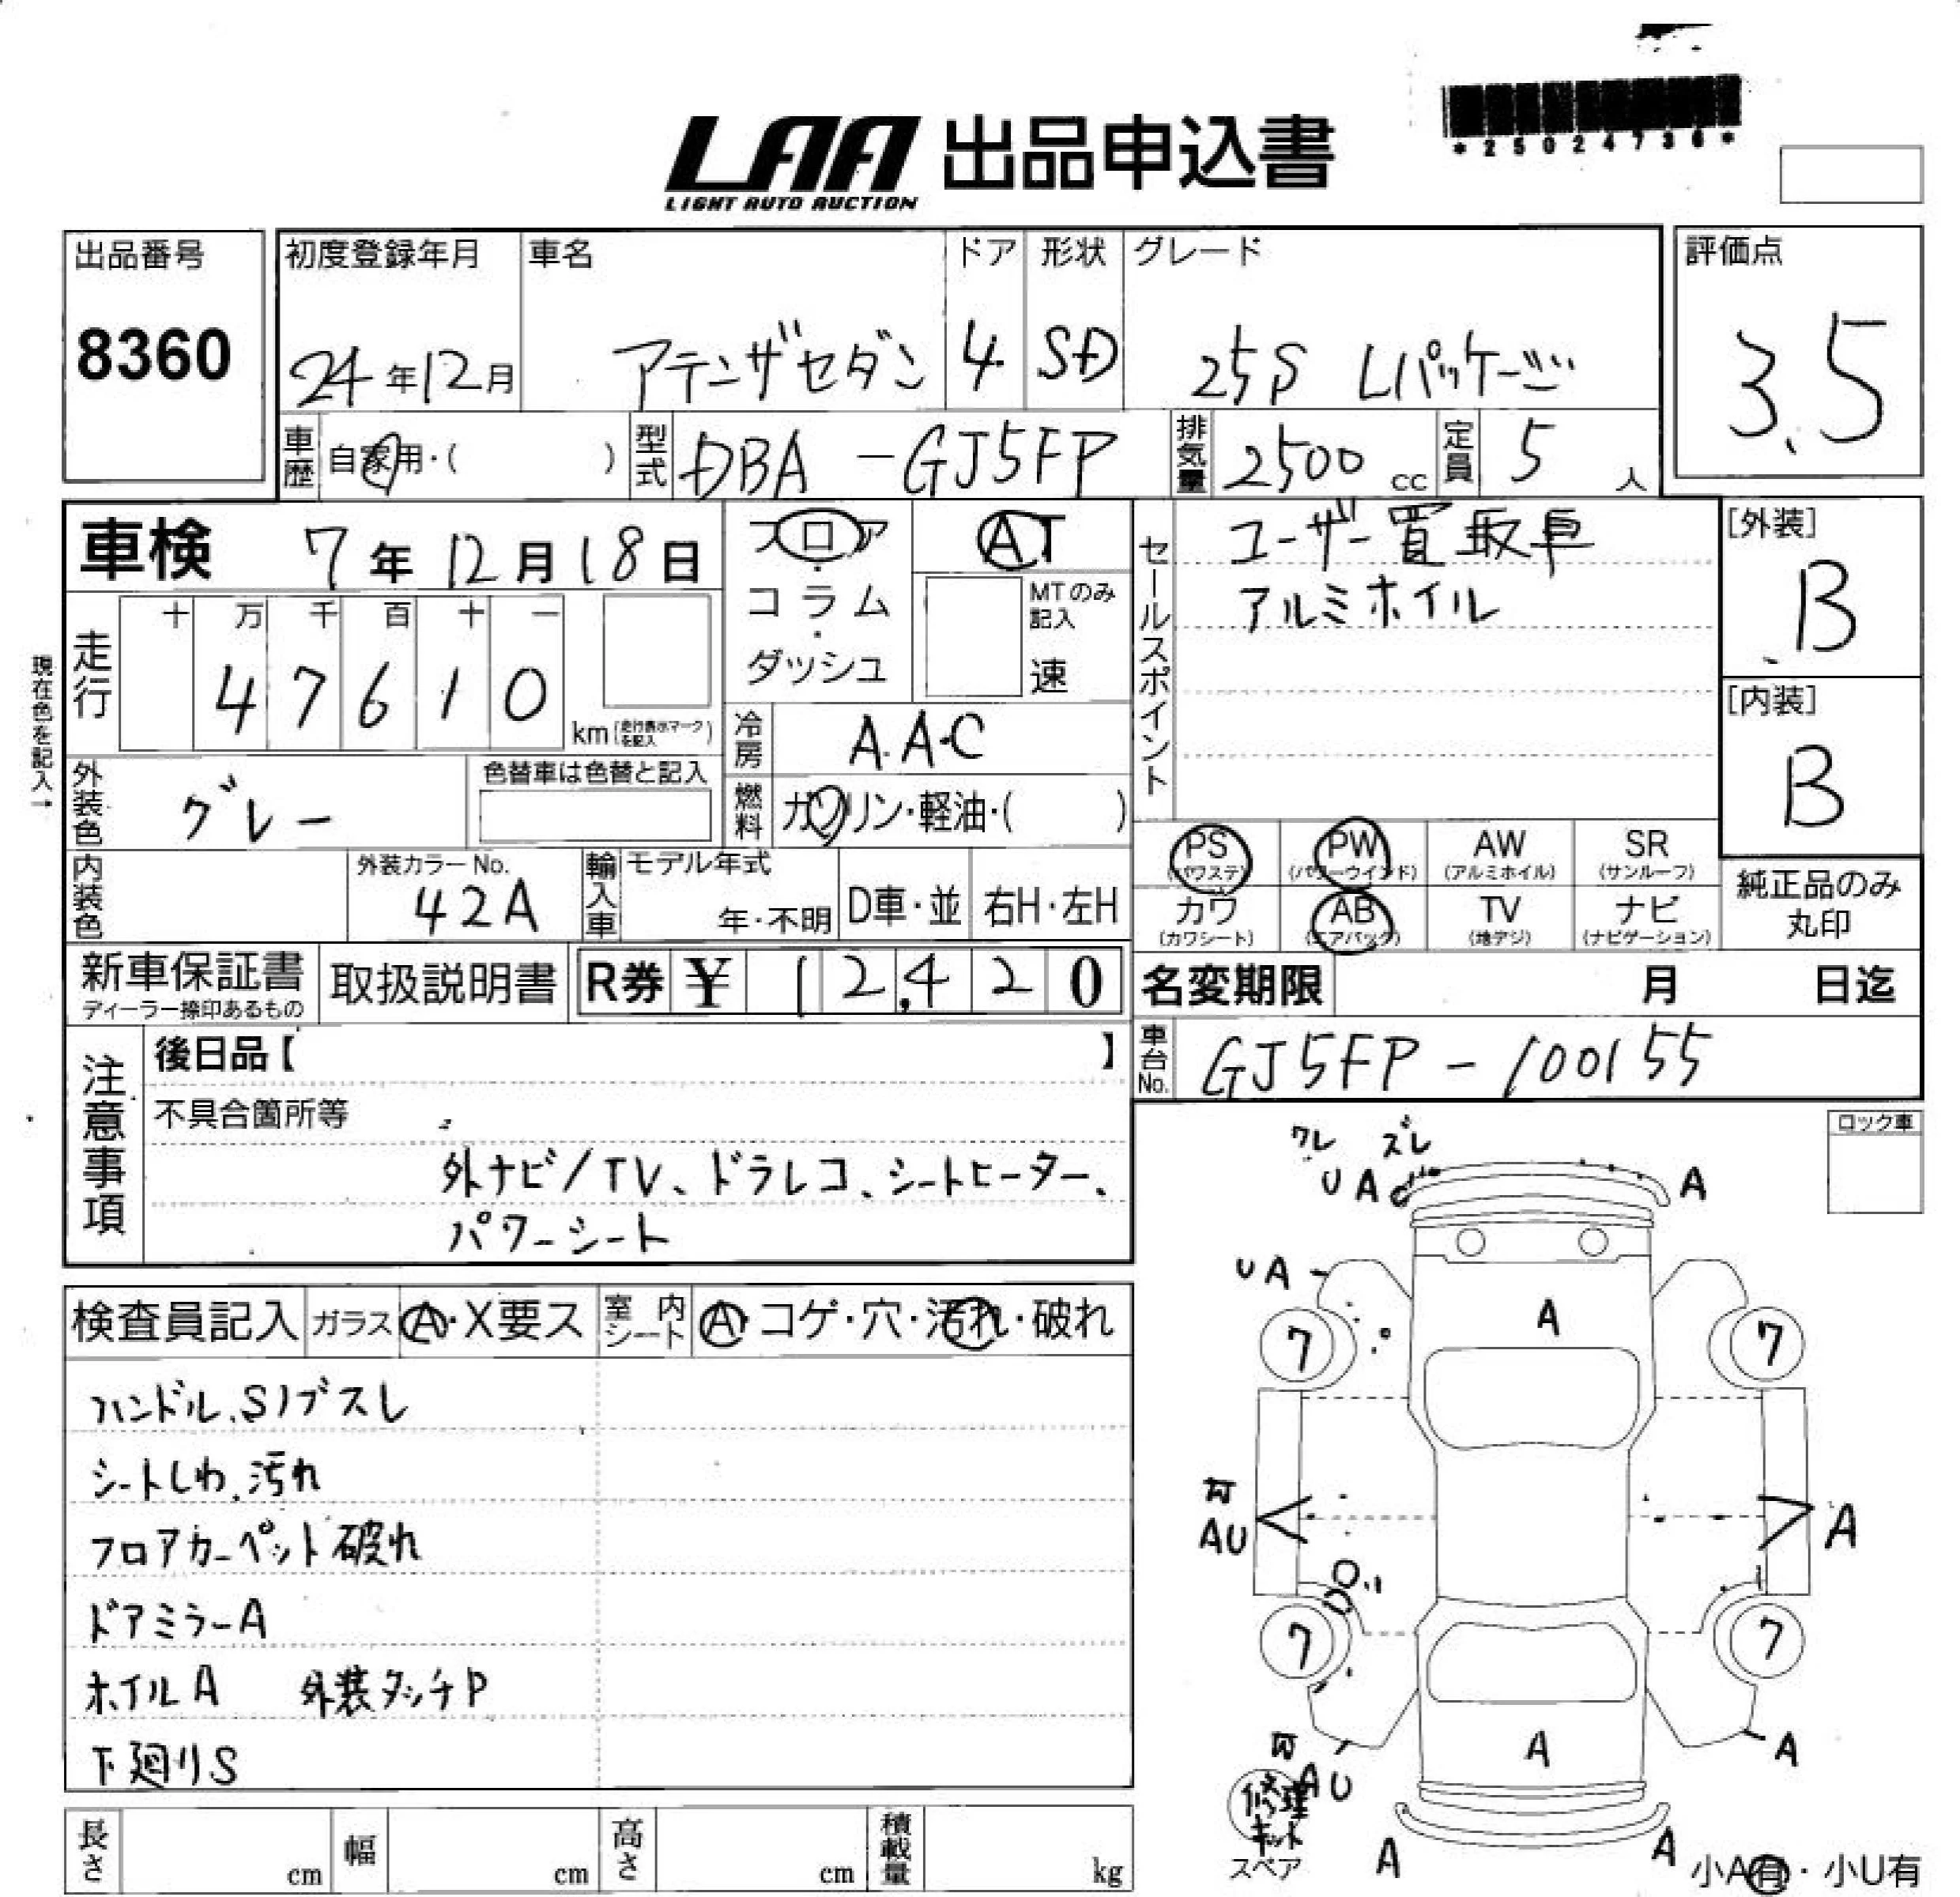 *25024736*
LAA 出品申込書
LIGHT AUTO AUCTION
出品番号
8360
初度登録年月
24年12月
車名
アテンザセダン
ドア
4
形状
SD
グレード
25S Lパッケージ
評価点
3.5
車歴 自家用・( )
型式 DBA-GJ5FP
排気量 2500cc
定員 5人
車検 7年12月18日
フロア
コラム
・
ダッシュ
AT
MTのみ
記入
速
セールスポイント
ユーザー買取車
アルミホイル
[外装]
B
[内装]
B
現在色を記入→
走行
十 万 千 百 十 一
4 7 6 1 0
km(走行表示マークを記入)
冷房 A.A.C
外装色 グレー
色替車は色替と記入
燃料 ガソリン・軽油・( )
PS PW AW SR
(パワステ) (パワーウインド) (アルミホイル) (サンルーフ)
カワ AB TV ナビ
(カワシート) (エアバック) (地デジ) (ナビゲーション)
純正品のみ
丸印
内装色
外装カラーNo.
42A
輸入車
モデル年式
年・不明
D車・並
右H・左H
新車保証書
ディーラー捺印あるもの
取扱説明書
R券 ¥ 12,420
名変期限 月 日迄
車台No. GJ5FP-100155
注意事項
後日品【 】
不具合箇所等
外ナビ/TV、ドラレコ、シートヒーター、
パワーシート
ロック車
検査員記入
ガラス A・X要ス
室内シート A・コゲ・穴・汚れ・破れ
ハンドル、Sノブスレ
シートしわ、汚れ
フロアカーペット破れ
ドアミラーA
ホイルA 外装タッチP
下廻りS
ワレ ズレ
UA
A
UA
A
7
7
AU
A
7
7
A
A
AU
修理
キット
スペア
A
A
小A有・小U有
長さ cm
幅 cm
高さ cm
積載量 kg